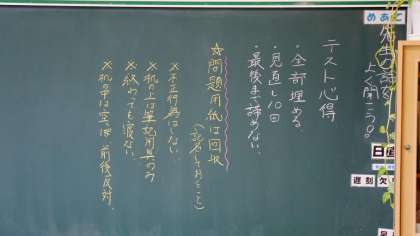 めあて
先生の話を
よく聞こう。
テスト心得
・全部埋める
・見直し10回
・最後まで諦めない。
☆問題用紙は回収
(記名しておくこと)
※不正行為はしない。
※机の上は筆記用具のみ
※終わっても寝ない。
※机の中は空っぽ 前後反対。
日直
遅刻
欠